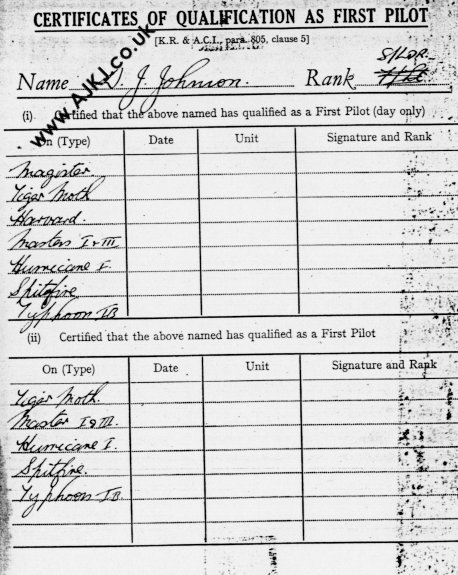 CERTIFICATES OF QUALIFICATION AS FIRST PILOT
[K.R. & A.C.I., para. 805, clause 5]
S/LDR.
Name D. J. Johnson. Rank F/Lt
www.AJKJ.co.uk
(i) Certified that the above named has qualified as a First Pilot (day only)
On (Type) Date Unit Signature and Rank
Magister.
Tiger Moth
Harvard.
Masters I & III
Hurricane I.
Spitfire
Typhoon IB
(ii) Certified that the above named has qualified as a First Pilot
On (Type) Date Unit Signature and Rank
Tiger Moth.
Master I & III.
Hurricane I.
Spitfire.
Typhoon IB